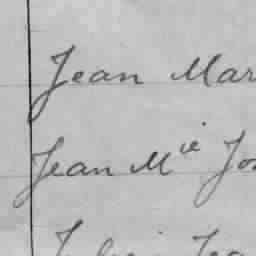 Jean Mar
Jean Mie Jos